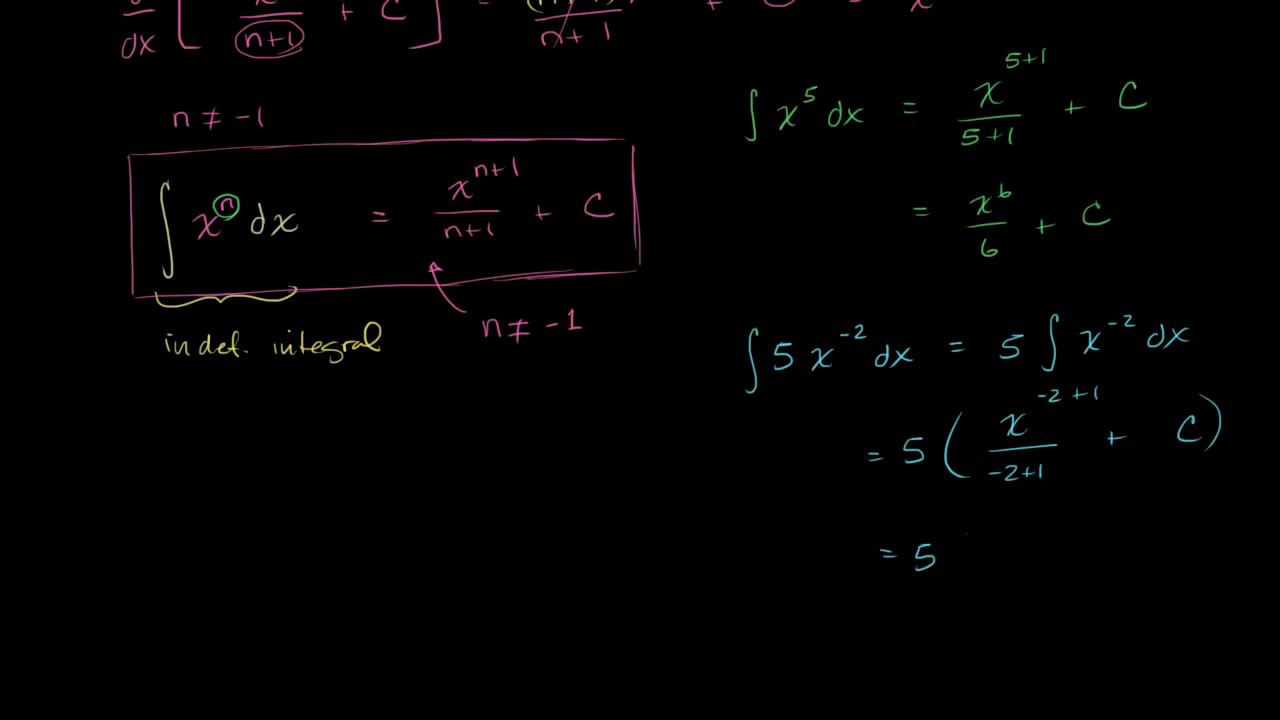 dx [ n+1 + C ] = n+1
n ≠ -1
∫ xⁿ dx = xⁿ⁺¹/n+1 + C
n ≠ -1
indef. integral
∫ x⁵ dx = x⁵⁺¹/5+1 + C
= x⁶/6 + C
∫ 5 x⁻² dx = 5 ∫ x⁻² dx
= 5 ( x⁻²⁺¹/-2+1 + C )
= 5